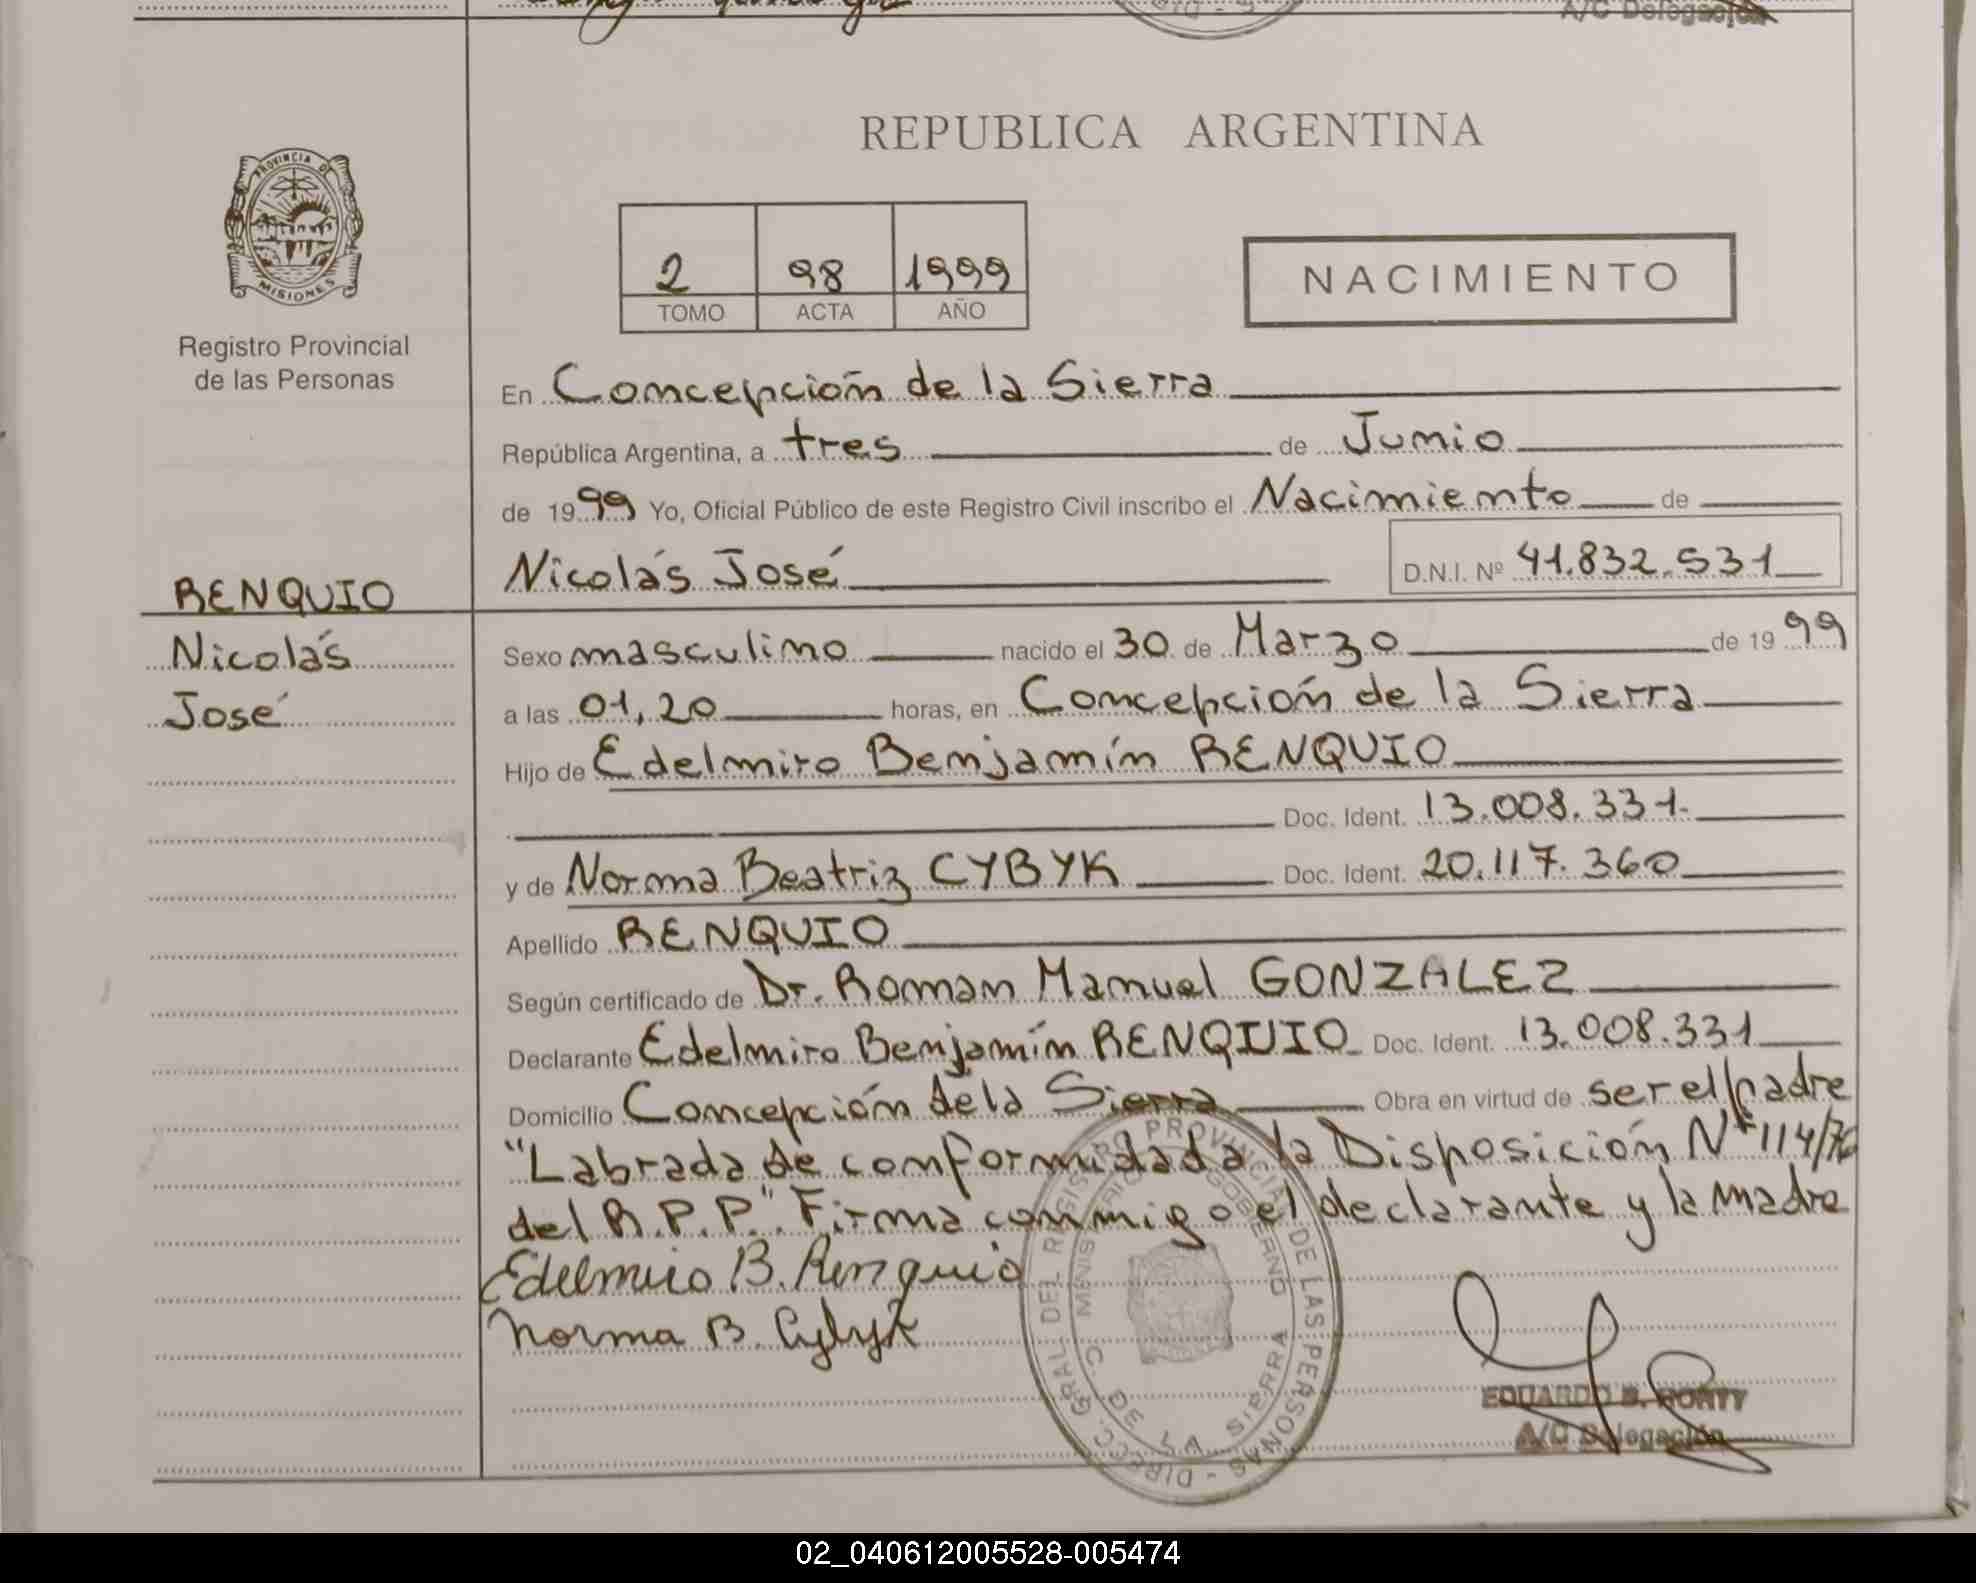 A/C Delegación
REPUBLICA ARGENTINA
PROVINCIA DE
MISIONES
Registro Provincial
de las Personas
2 98 1999
TOMO ACTA AÑO
NACIMIENTO
En Concepción de la Sierra
República Argentina, a tres de Junio
de 1999 Yo, Oficial Público de este Registro Civil inscribo el Nacimiento de
Nicolás José D.N.I. Nº 41.832.531
RENQUIO
Nicolás
José
Sexo masculino nacido el 30 de Marzo de 1999
a las 01,20 horas, en Concepción de la Sierra
Hijo de Edelmiro Benjamín RENQUIO
Doc. Ident. 13.008.331.
y de Norma Beatriz CYBYK Doc. Ident. 20.117.360
Apellido RENQUIO
Según certificado de Dr. Roman Manuel GONZALEZ
Declarante Edelmiro Benjamín RENQUIO Doc. Ident. 13.008.331
Domicilio Concepción de la Sierra Obra en virtud de ser el padre
"Labrada de conformidad a la Disposición Nº 114/76
del R.P.P." Firma conmigo el declarante y la madre
Edelmiro B. Renquio
Norma B. Cybyk
DIRECC. GRAL. DEL REGISTRO PROVINCIAL DE LAS PERSONAS -
MINISTERIO GOBIERNO
C. DE LA SIERRA
EDUARDO B. HORTY
A/C Delegación
02_040612005528-005474